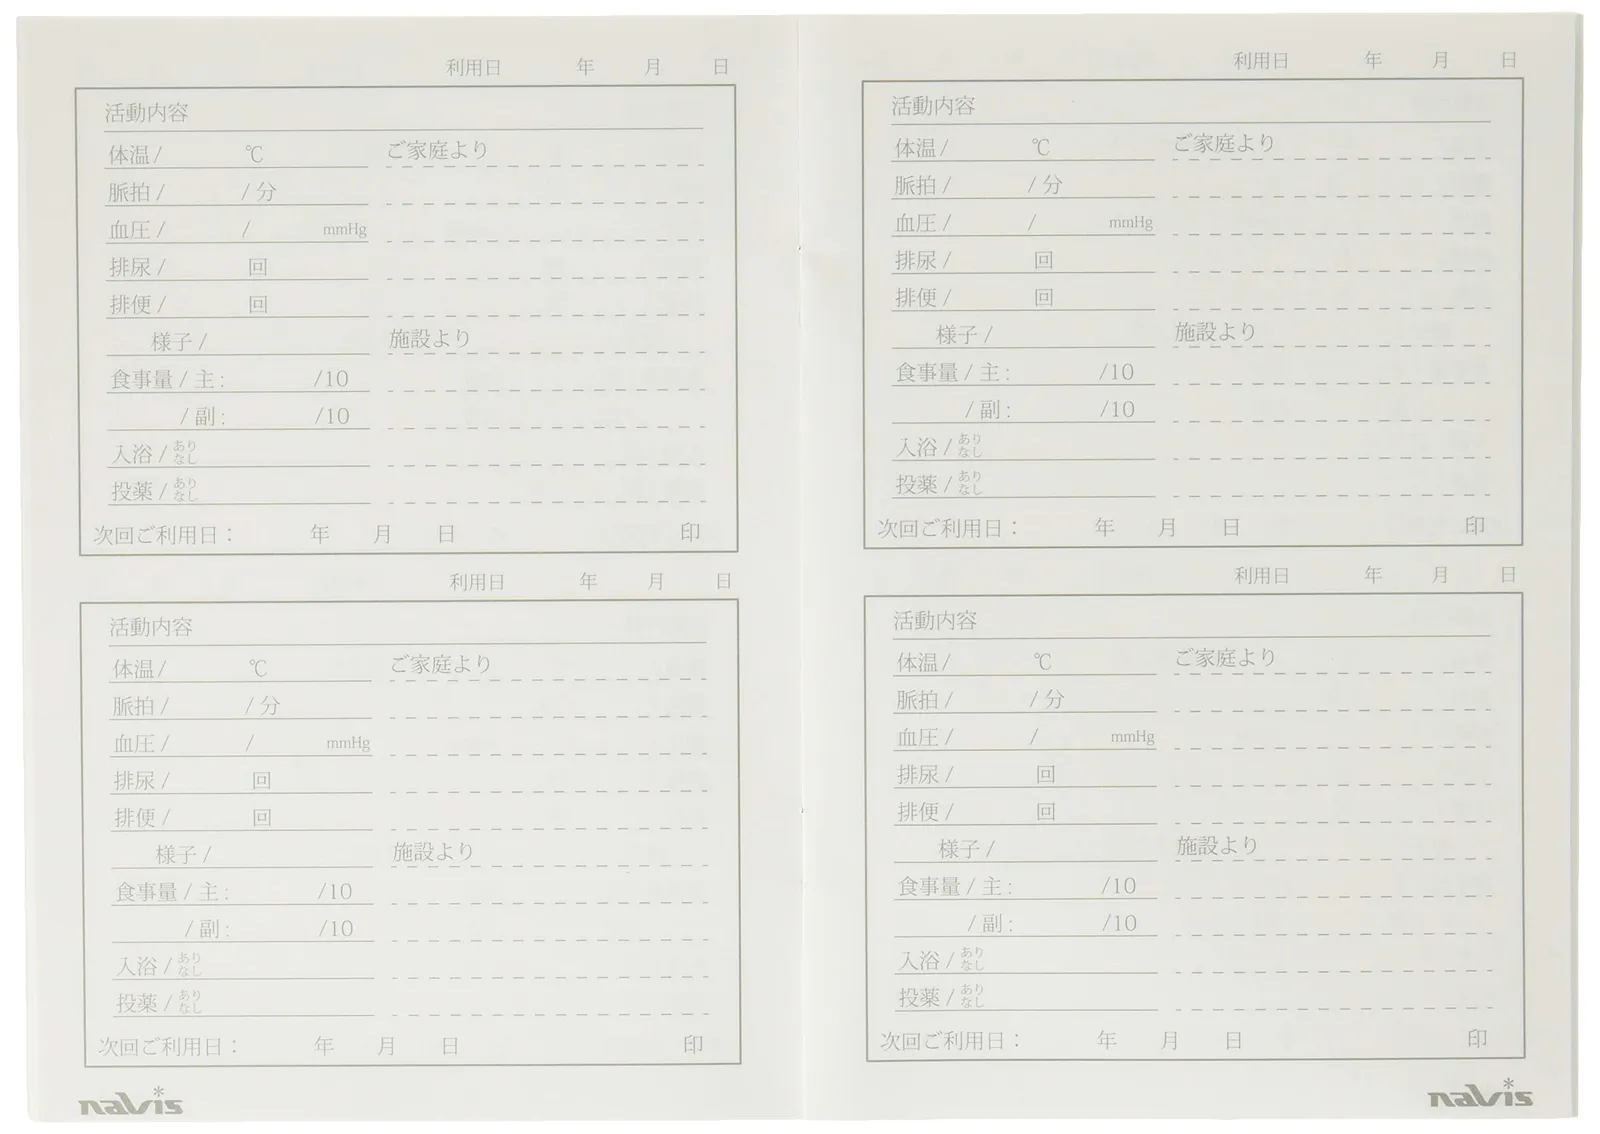 利用日 年 月 日
活動内容
体温/ ℃ ご家庭より
脈拍/ /分
血圧/ / mmHg
排尿/ 回
排便/ 回
様子/ 施設より
食事量/主: /10
/副: /10
入浴/あり
なし
投薬/あり
なし
次回ご利用日： 年 月 日 印
利用日 年 月 日
活動内容
体温/ ℃ ご家庭より
脈拍/ /分
血圧/ / mmHg
排尿/ 回
排便/ 回
様子/ 施設より
食事量/主: /10
/副: /10
入浴/あり
なし
投薬/あり
なし
次回ご利用日： 年 月 日 印
navis
利用日 年 月 日
活動内容
体温/ ℃ ご家庭より
脈拍/ /分
血圧/ / mmHg
排尿/ 回
排便/ 回
様子/ 施設より
食事量/主: /10
/副: /10
入浴/あり
なし
投薬/あり
なし
次回ご利用日： 年 月 日 印
利用日 年 月 日
活動内容
体温/ ℃ ご家庭より
脈拍/ /分
血圧/ / mmHg
排尿/ 回
排便/ 回
様子/ 施設より
食事量/主: /10
/副: /10
入浴/あり
なし
投薬/あり
なし
次回ご利用日： 年 月 日 印
navis